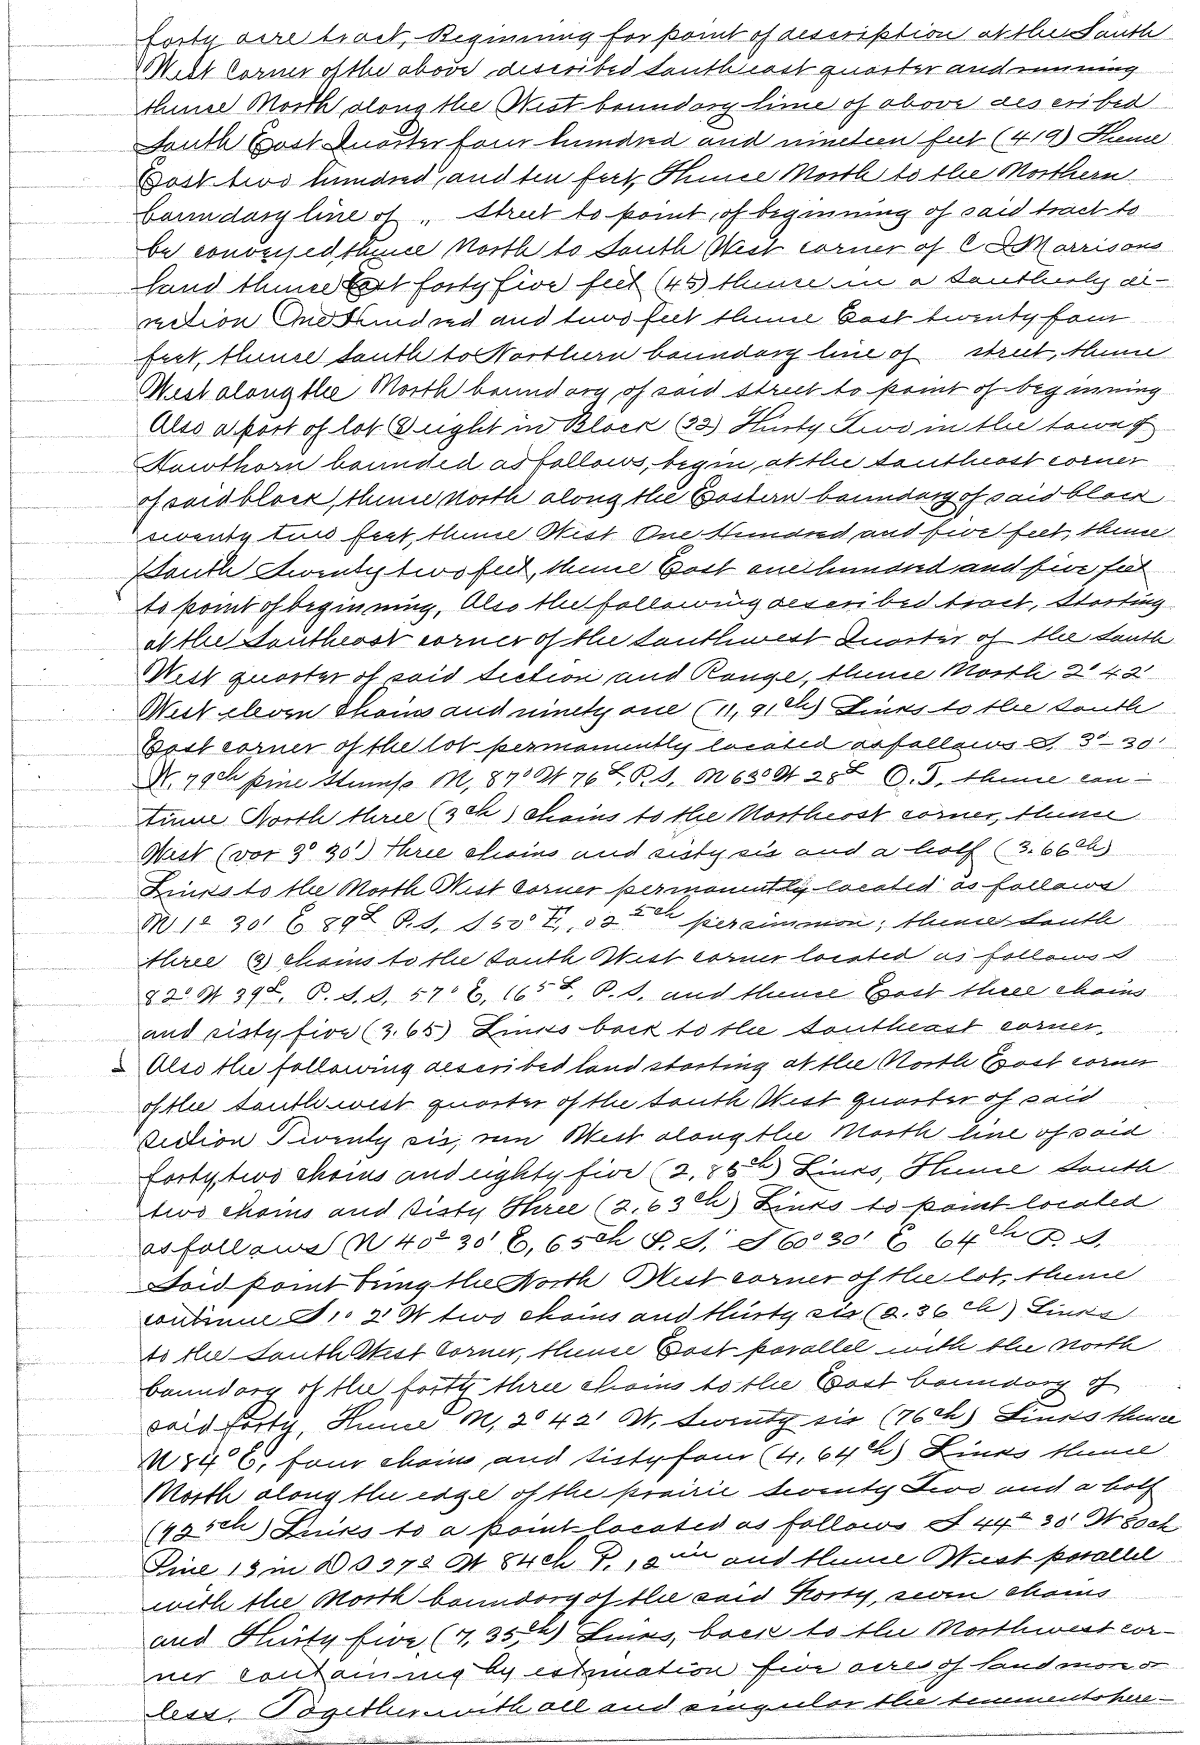 forty acre tract, Beginning for point of description at the South
West Corner of the above described South east quarter and running
thence North along the West boundary line of above described
South East Quarter four hundred and nineteen feet (419) Thence
East two hundred and ten feet, Thence North to the Northern
boundary line of „ street to point of beginning of said tract to
be conveyed, thence North to South West corner of C Morrisons
land thence East forty five feet (45) thence in a Southerly di-
rection One Hundred and two feet thence East twenty four
feet, thence South to Northern boundary line of street, thence
West along the North boundary of said street to point of beginning
Also a part of lot 8 eight in Block (32) Thirty Two in the town of
Hawthorn bounded as follows, begin, at the Southeast corner
of said block, thence North along the Eastern boundary of said block
seventy two feet, thence West One Hundred and five feet, thence
South Seventy two feet, thence East one hundred and five feet
to point of beginning, Also the following described tract, Starting
at the Southeast corner of the Southwest Quarter of the South
West quarter of said Section and Range, thence North 2° 42'
West eleven Chains and ninety one (11,91ch) Links to the South
East corner of the lot permanently located as follows S 3°-30'
W. 79ch pine stump N, 87° W 76L P.S. N 63° W 28L O.T. thence con-
tinue North three (3ch) chains to the Northeast corner, thence
West (var 3° 30') three chains and sixty six and a half (3.66ch)
Links to the North West Corner permanently located as follows
N 1° 30' E 89L P.S. S 50° E, 02 5ch persimmon; thence South
three (3) chains to the South West corner located as follows S
82° W 39L. P.S. S. 57° E, 165L. P.S. and thence East three chains
and sixty five (3.65) Links back to the Southeast corner.
Also the following described land starting at the North East corner
of the South west quarter of the South West quarter of said
Section Twenty six, run West along the North line of said
forty, two chains and eighty five (2,85ch) Links, Thence South
two chains and Sixty Three (2.63ch) Links to point located
as follows (N 40° 30' E, 65ch P.S. S 60° 30' E 64ch P.S.
Said point being the North West corner of the lot, thence
continue S. 2° W two chains and thirty six (2.36ch) Links
to the South West Corner, thence East parallel with the North
boundary of the forty three chains to the East boundary of
said forty, Thence N, 2° 42' W. Seventy six (76ch) Links thence
N 84° E, four chains and sixty four (4,64ch) Links thence
North along the edge of the prairie seventy Two and a half
(72 5ch) Links to a point located as follows S 44° 30' W 80ch
Pine 13 in D S 37° W 84ch P. 12 in and thence West parallel
with the North boundary of the said Forty, seven chains
and Thirty five (7,35ch) Links, back to the Northwest cor-
ner containing by estimation five acres of land more or
less. Together with all and singular the tenements here-